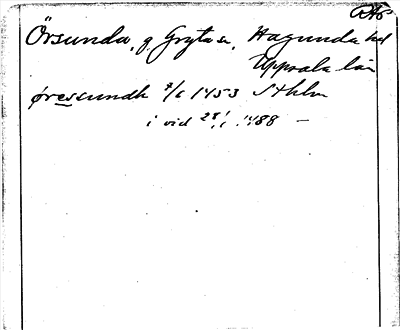 Örsunda, g. Gryta sn, Hagunda hd
Uppsala län
øressundh 7/6 1453 Sthlm
i vid 28/1 1488 —